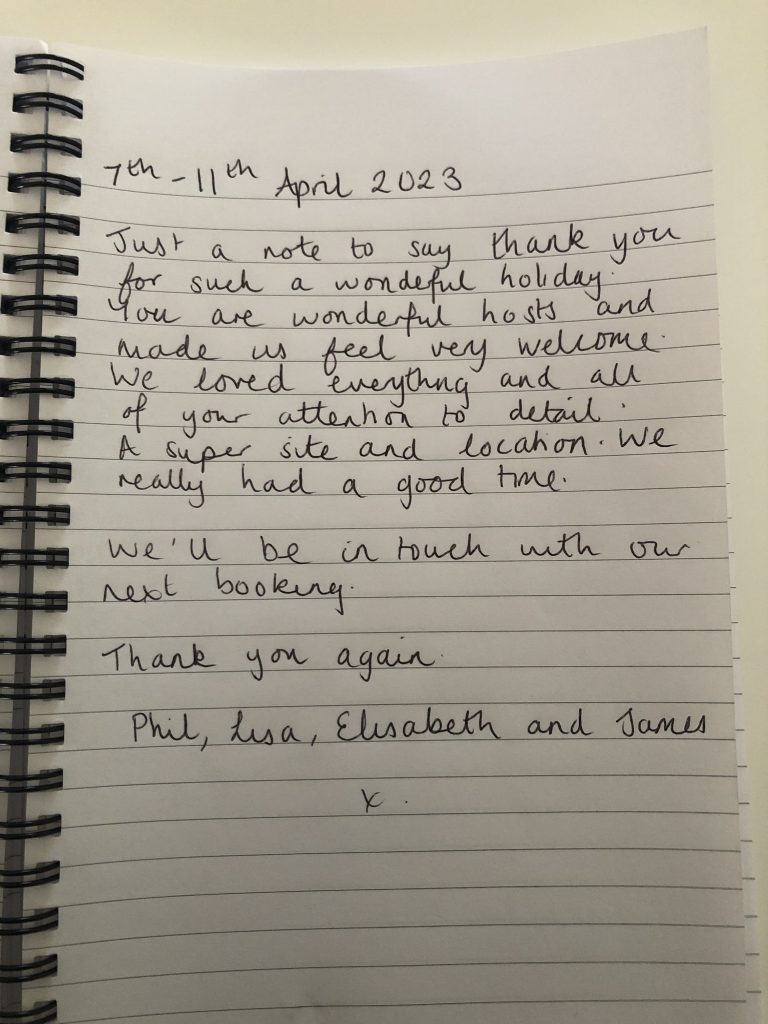 7th - 11th April 2023
Just a note to say thank you
for such a wondeful holiday.
You are wonderful hosts and
made us feel very welcome.
We loved everythng and all
of your attention to detail.
A super site and location. We
really had a good time.
We'll be in touch with our
next booking.
Thank you again.
Phil, Lisa, Elisabeth and James
x.